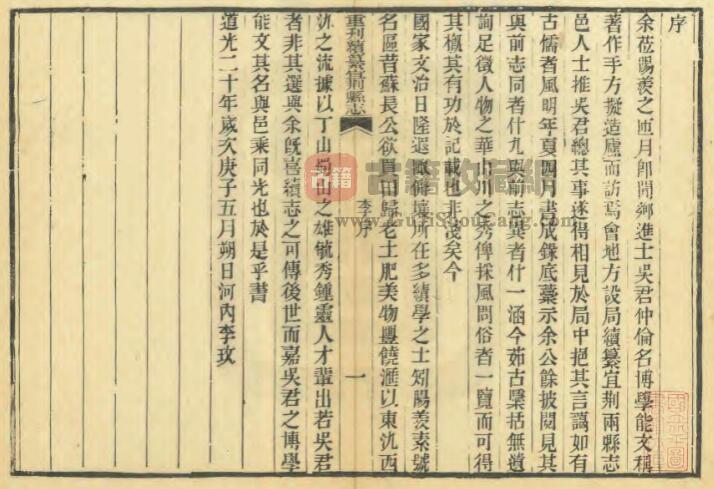 序
余莅陽羨之匝月卽聞鄉進士吳君仲倫名博學能文稱
著作手方擬造廬而訪焉會地方設局續纂宜荆兩縣志
邑人士推吳君總其事遂得相見於局中挹其言論如有
古儒者風明年夏四月書成錄底藁示余公餘披閱見其
與前志同者什九與前志異者什一涵今茹古檃括無遺
詢足徵人物之華山川之秀俾採風問俗者一覽而可得
其概其有功於記載也非淺矣今
國家文治日隆遐陬僻壤所在多續學之士矧陽羨素號
名區昔蘇長公欲買田歸老土肥美物豐饒滙以東氿西
重刊續纂宜荆縣志
李序
一
氿之流據以丁山蜀山之雄毓秀鍾靈人才輩出若吳君
者非其選與余旣喜續志之可傳後世而嘉吳君之博學
能文其名與邑乘同光也於是乎書
道光二十年歲次庚子五月朔日河內李玫
古籍收藏網
www.GuJiShouCang.com